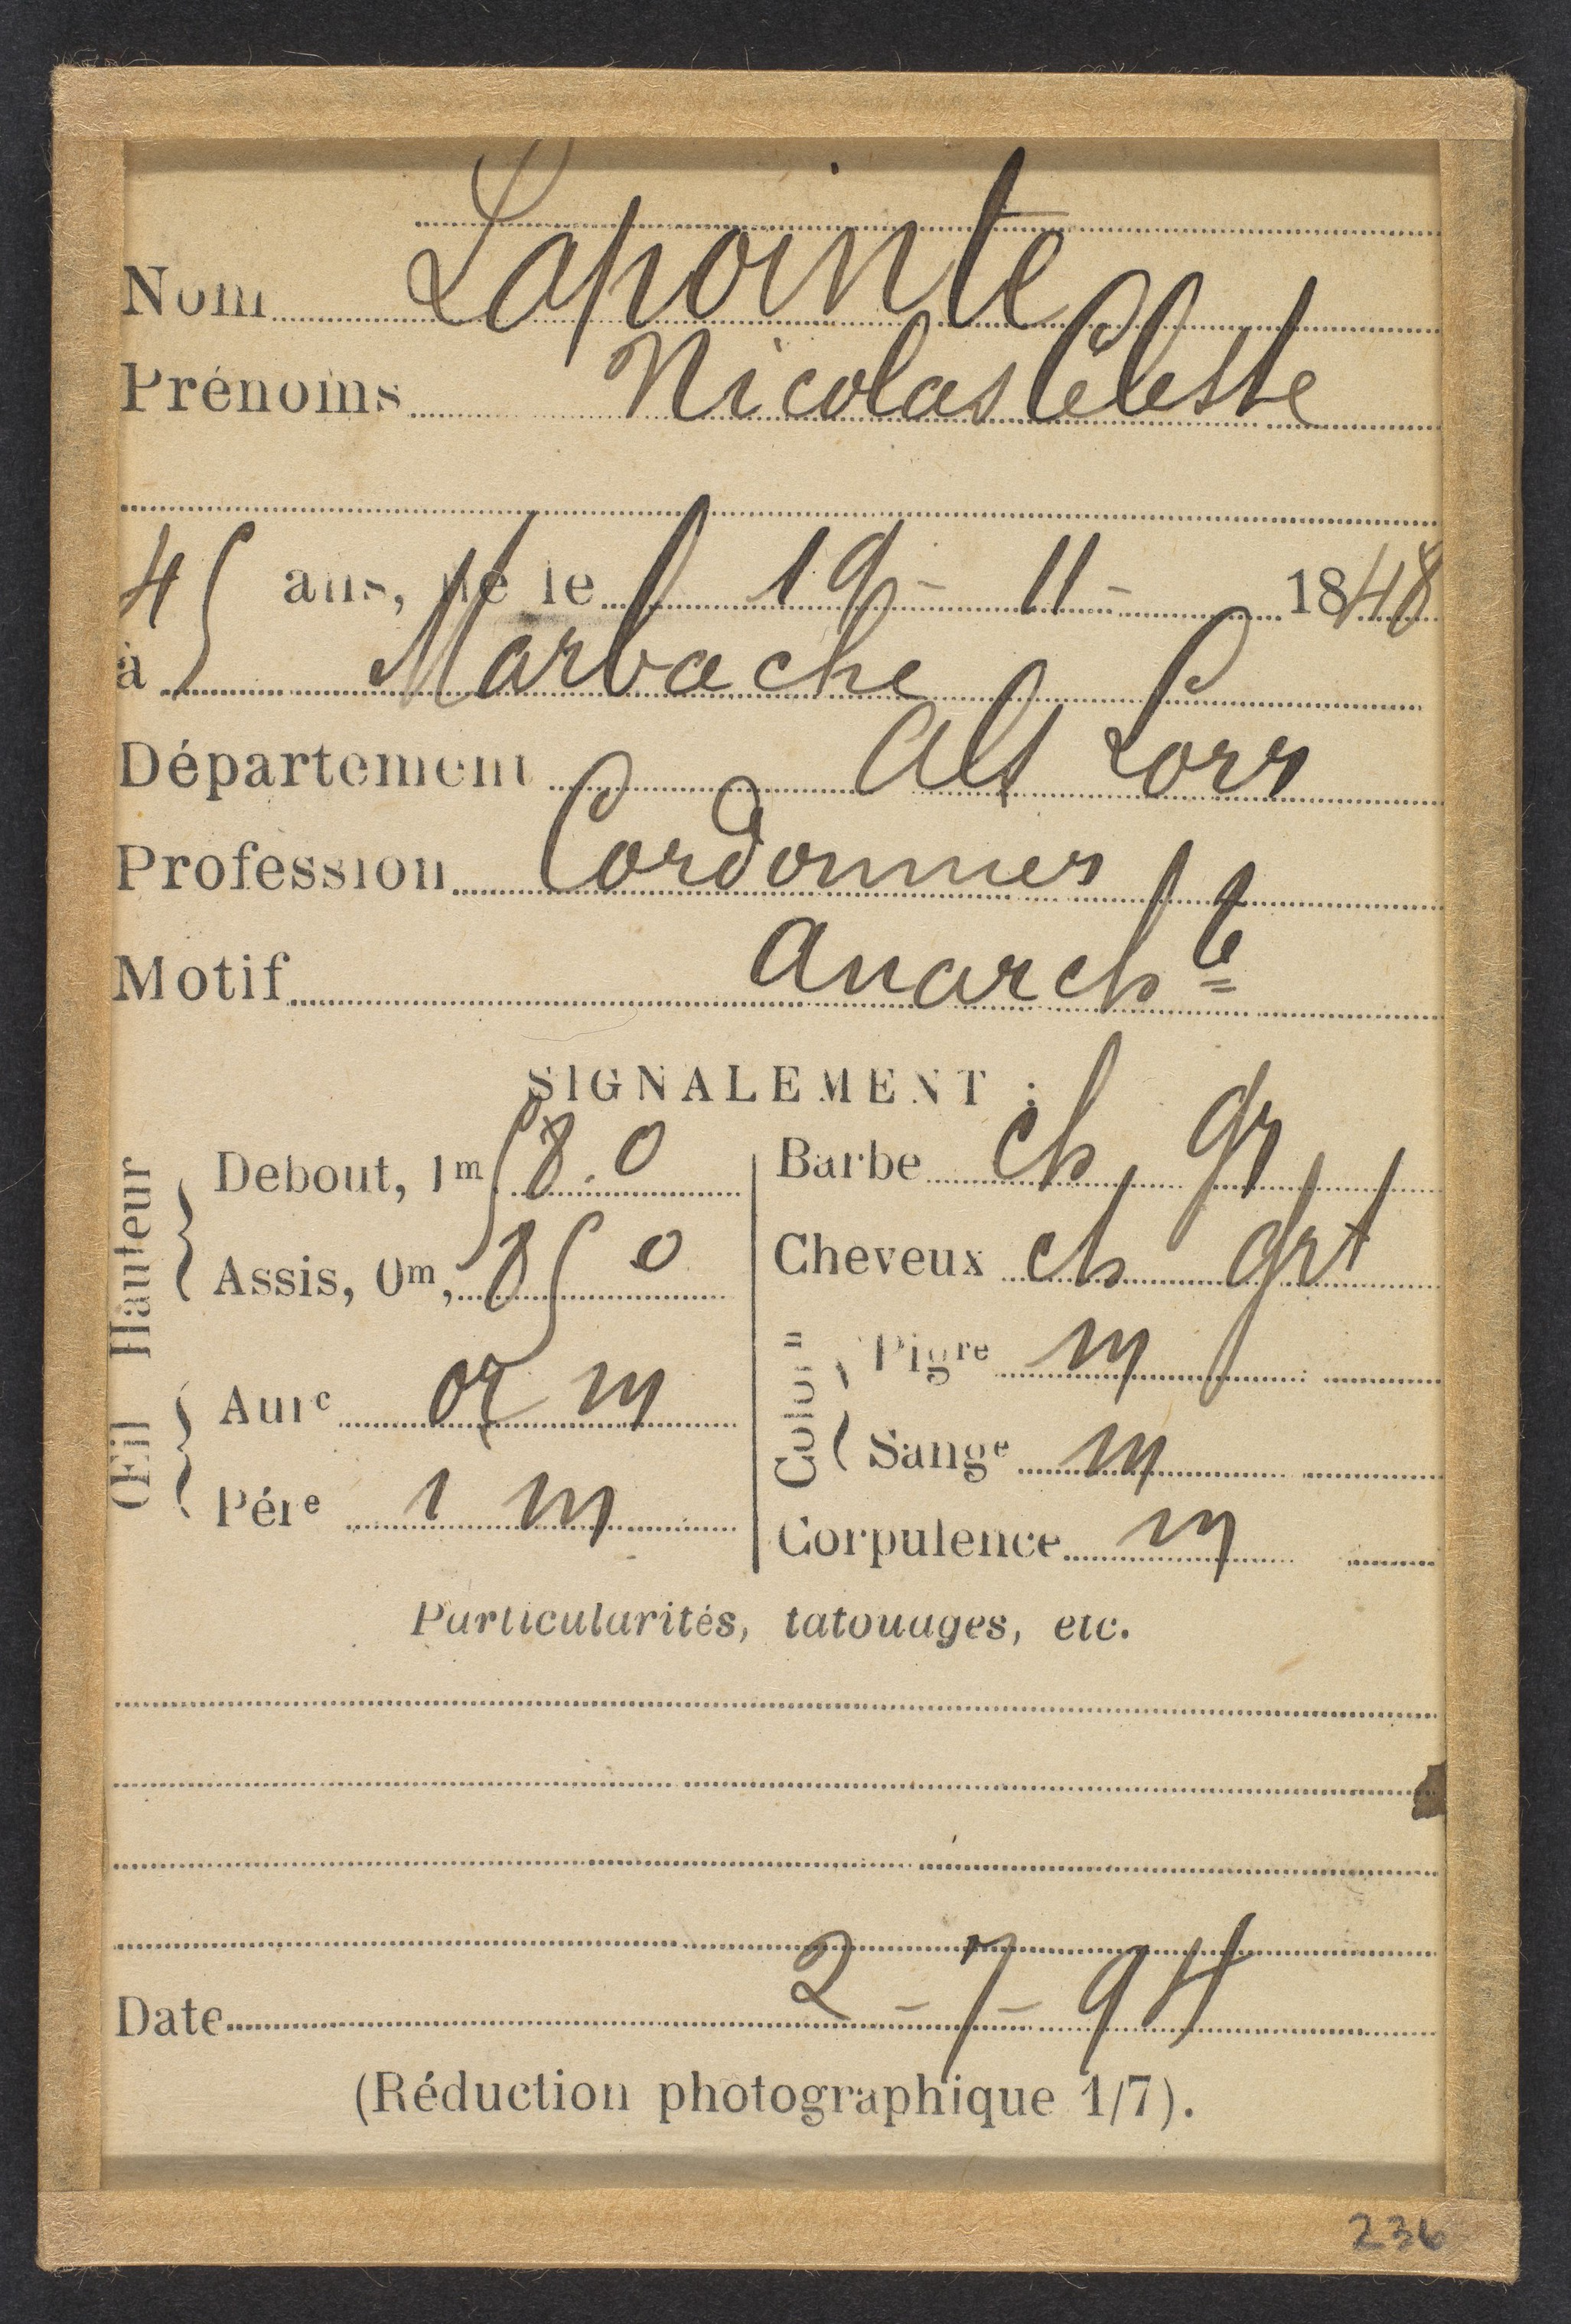 Nom Lapointe
Prénoms Nicolas Céleste
45 ans, né le 19 - 11 - 1848
à Marbache
Département Als Lorr
Profession Cordonnier
Motif anarch te
SIGNALEMENT :
Hauteur
Debout, 1m, 58.0
Assis, 0m, 85 0
Œil
Aure or m
Pére 1 m
Barbe ch. gr
Cheveux ch grt
Colorn
Pigre m
Sange m
Corpulence m
Particularités, tatouages, etc.
Date 2 - 7 - 94
(Réduction photographique 1/7).
236